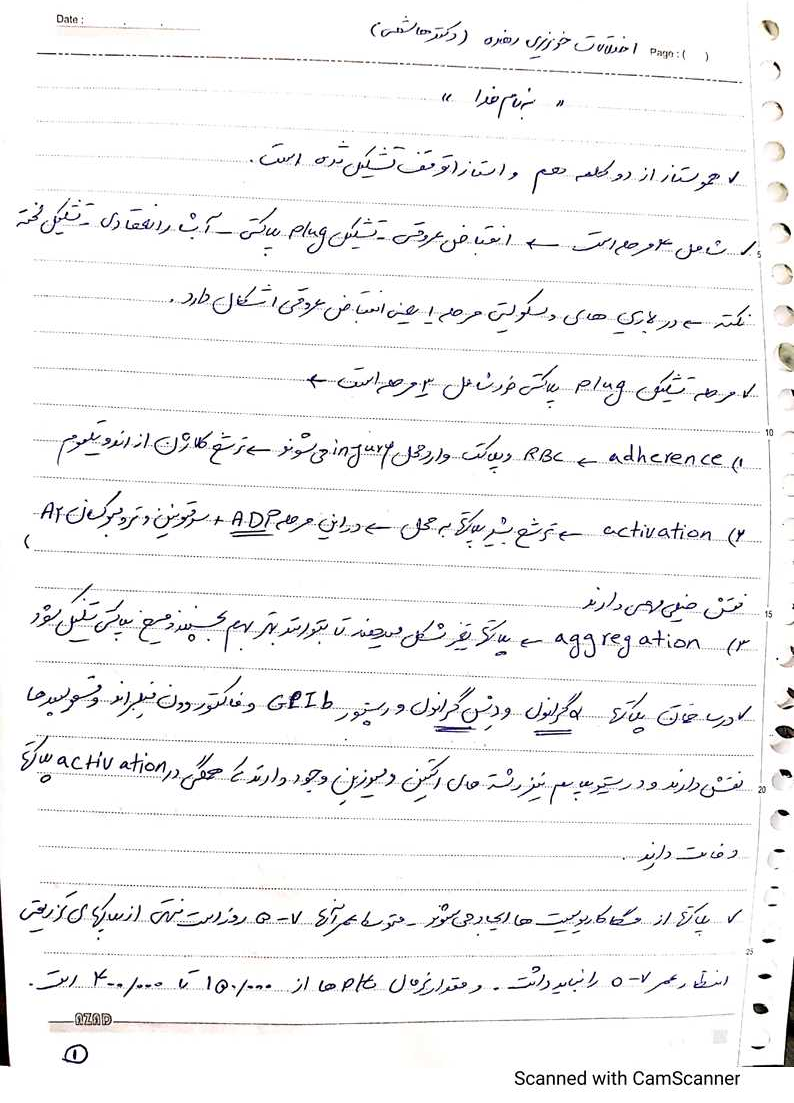 Date : . . .
اختلالات خونریزی دهنده (دکتر هاشمی) Page : ( )
" به نام خدا "
✓ هموستاز از دو کلمه هم و استاز = توقف تشکیل شده است.
✓ شامل ۴ مرحله است ← انقباض عروقی - تشکیل plug پلاکتی - آبشار انعقادی - تشکیل لخته
5
نکته ← در بیماری های وسکولیتی مرحله ۱ یعنی انقباض عروقی اشکال دارد.
✓ مرحله تشکیل plug پلاکتی خود شامل ۳ مرحله است ←
10
۱) adherence ← RBC و پلاکت وارد محل injury می شوند ← ترشح کلاژن از اندوتلیوم
۲) activation ← ترشح بیشتر پلاکتها به محل ← در این مرحله ADP + سروتونین و ترومبوکسان A۲
نقش خیلی مهمی دارند
15
۳) aggregation ← پلاکتها تغییر شکل میدهند تا بتوانند بهتر بهم بچسبند و میخ پلاکتی تشکیل شود
✓ در ساختمان پلاکتها α گرانول و دنس گرانول و رسپتور GPIb و فاکتور وون ویلبراند و فسفولیپیدها
نقش دارند و در سیتوپلاسم نیز رشته های اکتین و میوزین وجود دارند که همگی در activation پلاکتها
20
دخالت دارند.
✓ پلاکتها از مگاکاریوسیت ها ایجاد می شوند - متوسط عمر آنها ۷-۵ روز است منتهی از پلاکهای تزریقی
25
انتظار عمر ۷-۵ را نباید داشت. و مقدار نرمال plt ها از ۱۵۰/۰۰۰ تا ۴۰۰/۰۰۰ است.
AZAD
۱
Scanned with CamScanner